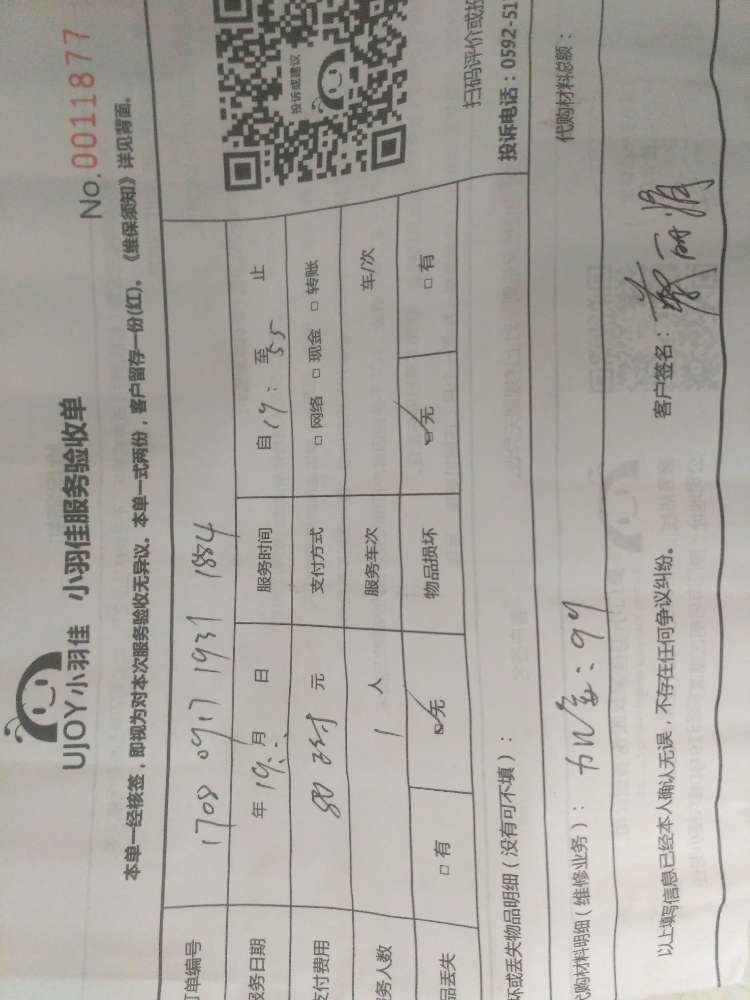 UJOY小羽佳 小羽佳服务验收单
No.0011877
本单一经核签，即视为对本次服务验收无异议。本单一式两份，客户留存一份(红)。《维保须知》详见背面。
订单编号 1708 0917 1931 1884
服务日期 年 19 月 日 服务时间 自 19: 至 55 止
支付费用 80 元 支付方式 □ 网络 □ 现金 □ 转账
服务人数 1 人 服务车次 车/次
物品丢失 □ 有 □ 无 物品损坏 □ 无 □ 有
投诉或建议
坏或丢失物品明细（没有可不填）：
扫码评价或投
投诉电话：0592-51
代购材料明细（维修业务）： :99
代购材料总额：
以上填写信息已经本人确认无误，不存在任何争议纠纷。
客户签名：